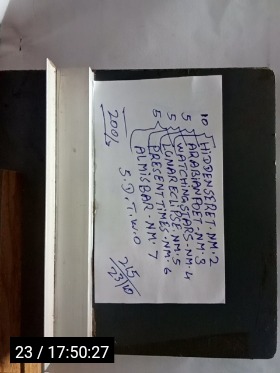 10 HIDDEN SERET. NM. 2
5 ARABIAN POET. NM. 3
5 WATCHING STARS. NM. 4
5 LUNAR ECLIPSE. NM. 5
5 PRESENT TIMES. NM. 6
ALMISBAR. NM. 7
5. T. W. O
23 / 17:50:27